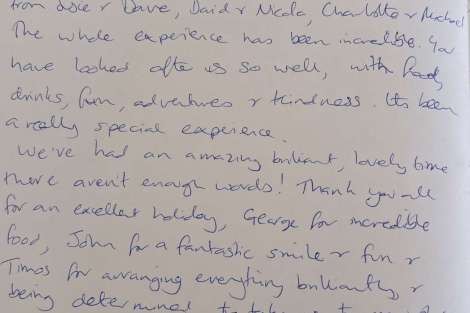 from Josie & Dave, David & Nicola, Charlotte & Michael
The whole experience has been incredible. You
have looked after us so well, with food,
drinks, fun, adventures & kindness. Its been
a really special experience.
We've had an amazing briliant, lovely time
there aren't enough words! Thank you all
for an excellent holiday, George for incredible
food, John for a fantastic smile & fun &
Timos for arranging everything brilliantly &
being determined to